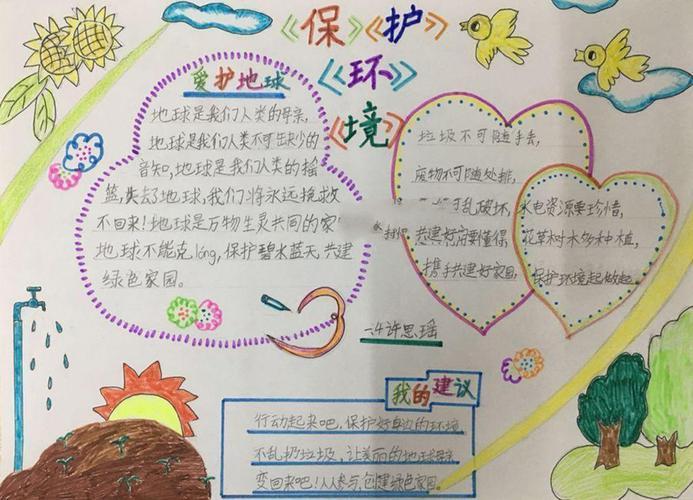 《保》《护》
《环》
《境》
爱护地球
地球是我们人类的母亲,
地球是我们人类不可缺少的
音知,地球是我们人类的摇
篮,失去地球,我们将永远挽救
不回来!地球是万物生灵共同的家
地球不能克lóng,保护碧水蓝天 共建
绿色家园。
垃圾不可随手丢,
废物不可随处排,
乱破坏,水电资源要珍惜,
共建好 要懂得,花草树木多种植,
携手共建好家园,保护环境起做起。
一4许思瑶
我的建议
行动起来吧,保护好身边的环境
不乱扔垃圾,让美丽的地球
变回来吧!人人参与,创建绿色家园。